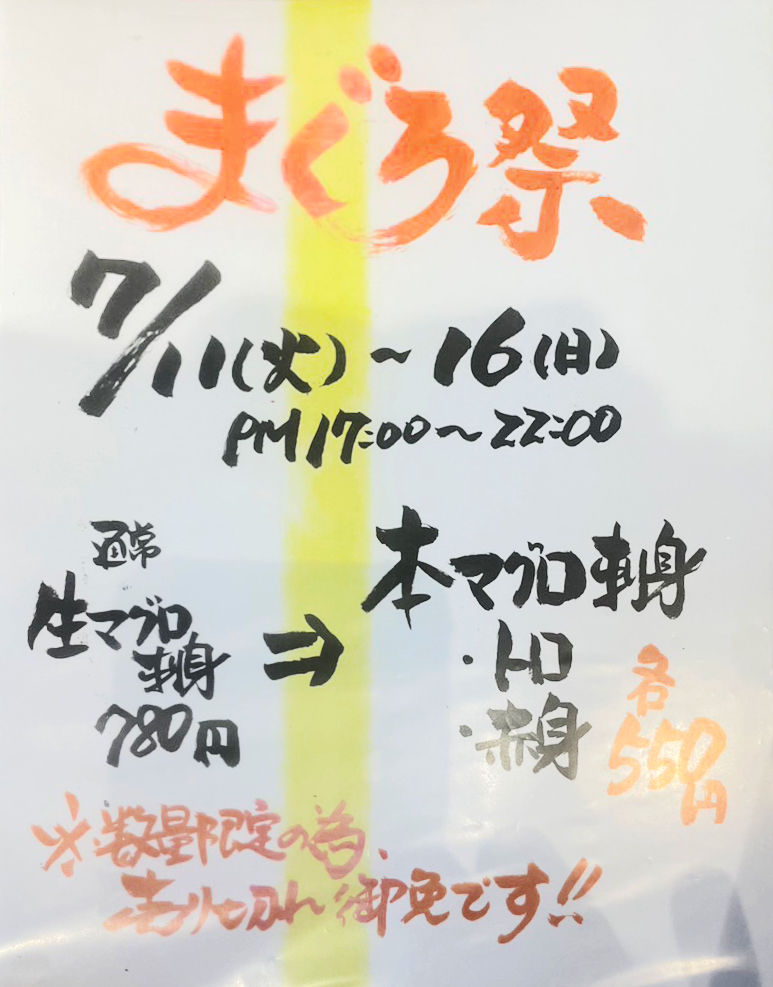 まぐろ祭
7/11(火)~16(日)
PM17:00~22:00
通常
生マグロ
刺身
780円
⇒
本マグロ刺身
・トロ
・赤身
各
550円
※数量限定の為、
売り切れ御免です!!